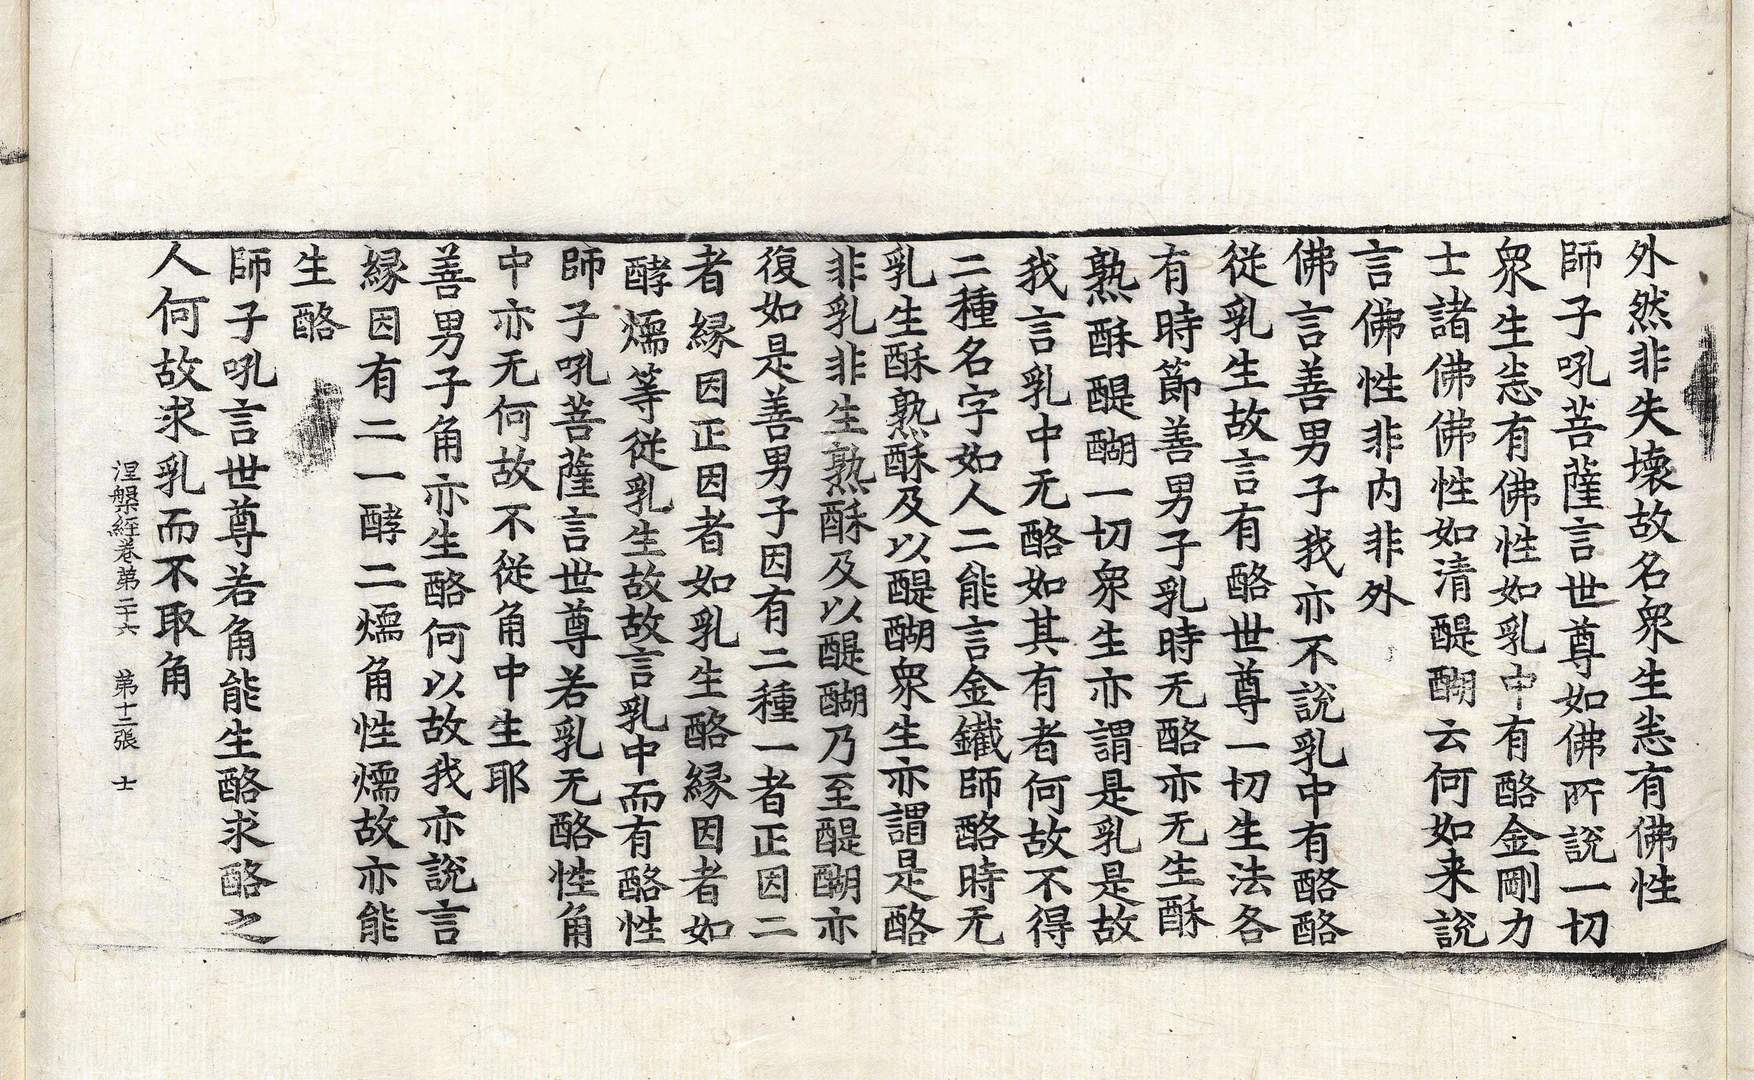 外然非失壞故名衆生悉有佛性
師子吼菩薩言世尊如佛所說一切
衆生悉有佛性如乳中有酪金剛力
士諸佛佛性如清醍醐云何如来說
言佛性非内非外
佛言善男子我亦不說乳中有酪酪
從乳生故言有酪世尊一切生法各
有時節善男子乳時无酪亦无生酥
熟酥醍醐一切衆生亦謂是乳是故
我言乳中无酪如其有者何故不得
二種名字如人二能言金鐵師酪時无
乳生酥熟酥及以醍醐衆生亦謂是酪
非乳非生熟酥及以醍醐乃至醍醐亦
復如是善男子因有二種一者正因二
者縁因正因者如乳生酪縁因者如
酵煗等從乳生故故言乳中而有酪性
師子吼菩薩言世尊若乳无酪性角
中亦无何故不從角中生耶
善男子角亦生酪何以故我亦說言
縁因有二一酵二煗角性煗故亦能
生酪
師子吼言世尊若角能生酪求酪之
人何故求乳而不取角
涅槃経卷第三十六 第十二張 士